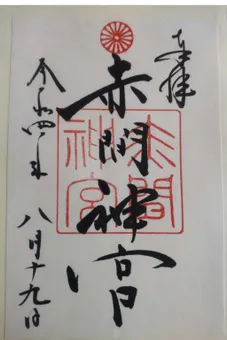 奉拝
赤間神宮
赤間
神宮
令和四年 八月十九日